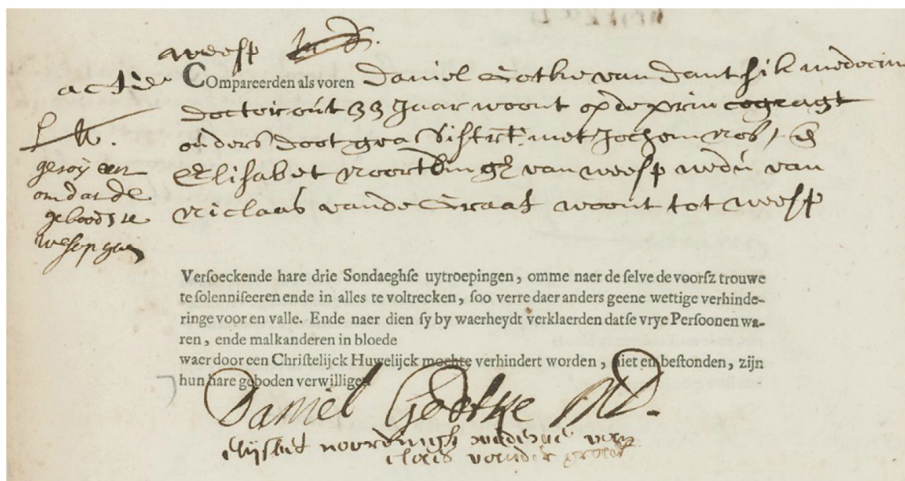 weesp
acte
COmpareerden als voren Daniel Gotke van dantsik medecin
doctoir out 33 Jaar woont op de princegragt
ouders doot geassistrt. met Jochem nob, &
Elisabet noortdingh van weesp wedu van
Niclaas vande Graaf woont tot weesp
geroijeert
omdat de
geboode te
weesp gaen
Versoeckende hare drie Sondaeghse uytroepingen, omme naer de selve de voorsz trouwe
te solenniseeren ende in alles te voltrecken, soo verre daer anders geene wettige verhinde-
ringe voor en valle. Ende naer dien sy by waerheydt verklaerden datse vrye Persoonen wa-
ren, ende malkanderen in bloede
waer door een Christelijck Huwelijck mochte verhindert worden, niet en bestonden, zijn
hun hare geboden verwilliget
Daniel Gödtke MD.